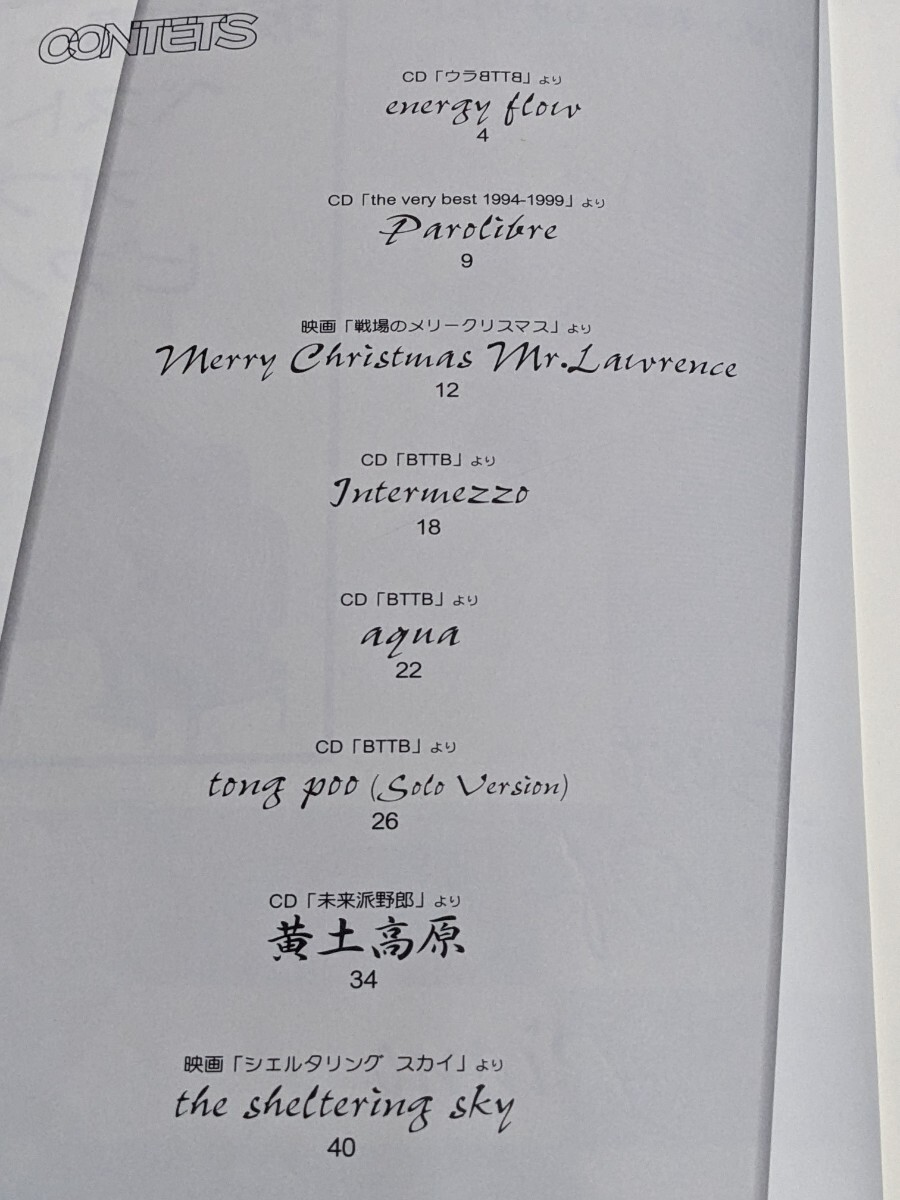 CONTETS
CD「ウラBTTB」より
energy flow
4
CD「the very best 1994-1999」より
Parolibre
9
映画「戦場のメリークリスマス」より
Merry Christmas Mr.Lawrence
12
CD「BTTB」より
Intermezzo
18
CD「BTTB」より
aqua
22
CD「BTTB」より
tong poo (Solo Version)
26
CD「未来派野郎」より
黄土高原
34
映画「シェルタリング スカイ」より
the sheltering sky
40